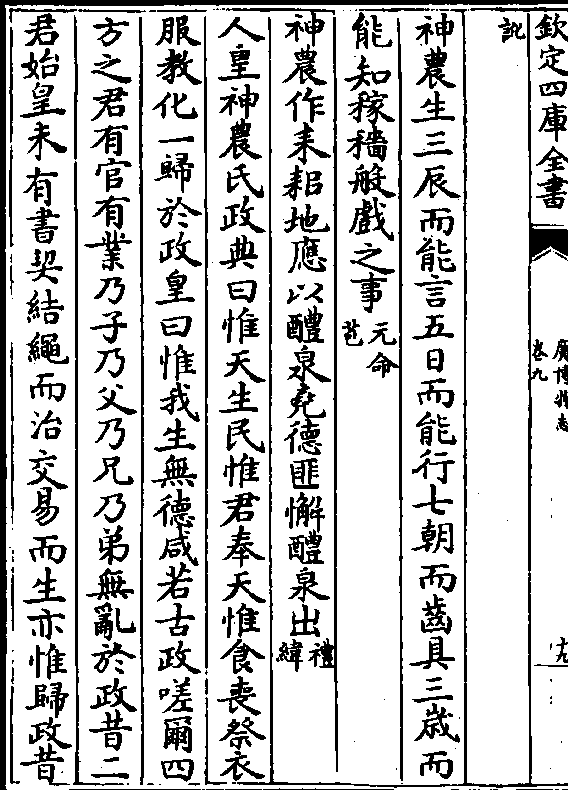 欽定四庫全書
廣博物志
卷九
十九
訛
神農生三辰而能言五日而能行七朝而齒具三歳而
能知稼穡般戲之事元命
苞
神農作耒耜地應以醴泉堯德匪懈醴泉出禮
緯
人皇神農氏政典曰惟天生民惟君奉天惟食喪祭衣
服教化一歸於政皇曰惟我生無德咸若古政嗟爾四
方之君有官有業乃子乃父乃兄乃弟無亂於政昔二
君始皇未有書契結繩而治交易而生亦惟歸政昔